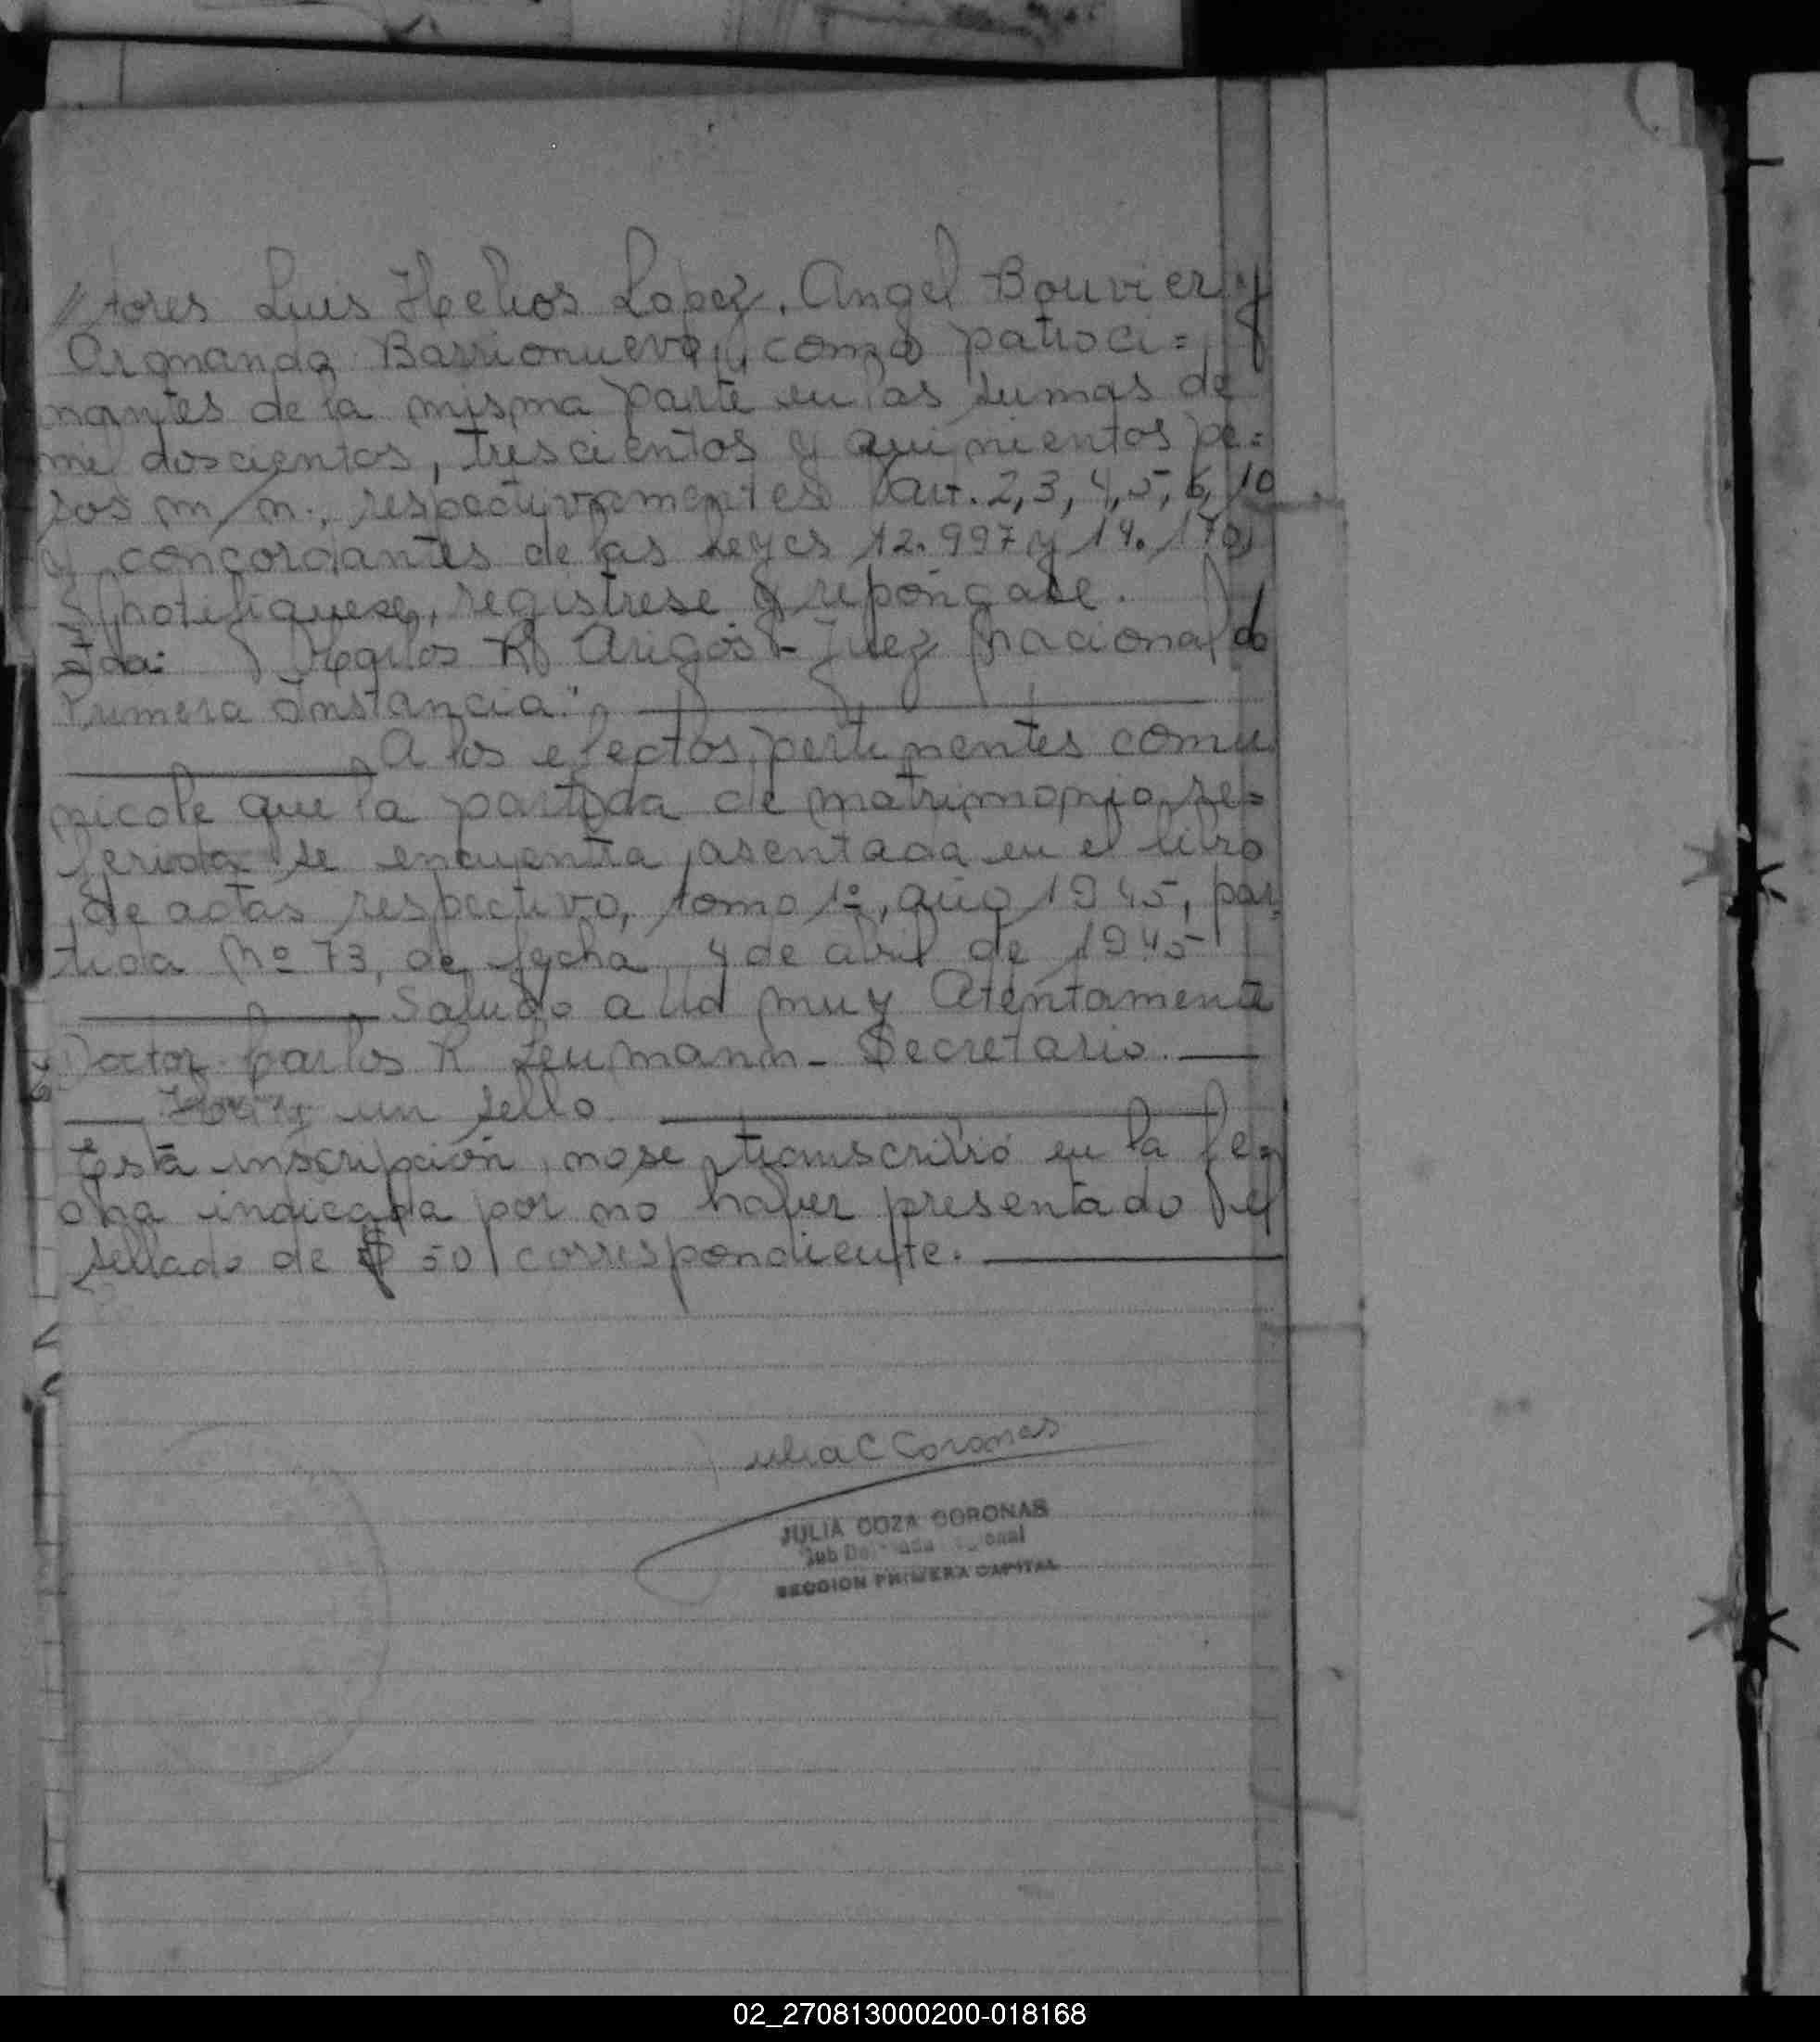 // tores Luis Helios Lopez, Angel Bouvier y
Armando Barrionuevo, como patroci=
nantes de la misma parte en las sumas de
mil doscientos, trescientos y quinientos pe=
sos m/n., respectivamentes (art. 2, 3, 4, 5, 6, 10
y concordantes de las leyes 12.997 y 14.170)
notifiquese, registrese y repóngase.
R Arigós - Juez Nacional de
Primera Instancia".
A los efectos pertinentes comu
nicole que la partida de matrimonio re=
ferida se encuentra asentada en el libro
de actas respectivo, tomo 1º, año 1945, par=
tida Nº 73, de fecha 4 de abril de 1945
Saludo a Ud muy Atentamente
Doctor Carlos R Zeumann - Secretario.
un sello.
Esta inscripción no se transcribió en la fe=
cha indicada por no haber presentado el
sellado de $ 50 correspondiente.
Julia C Coronas
JULIA COZA CORONAS
SECCION PRIMERA CAPITAL
02_270813000200-018168